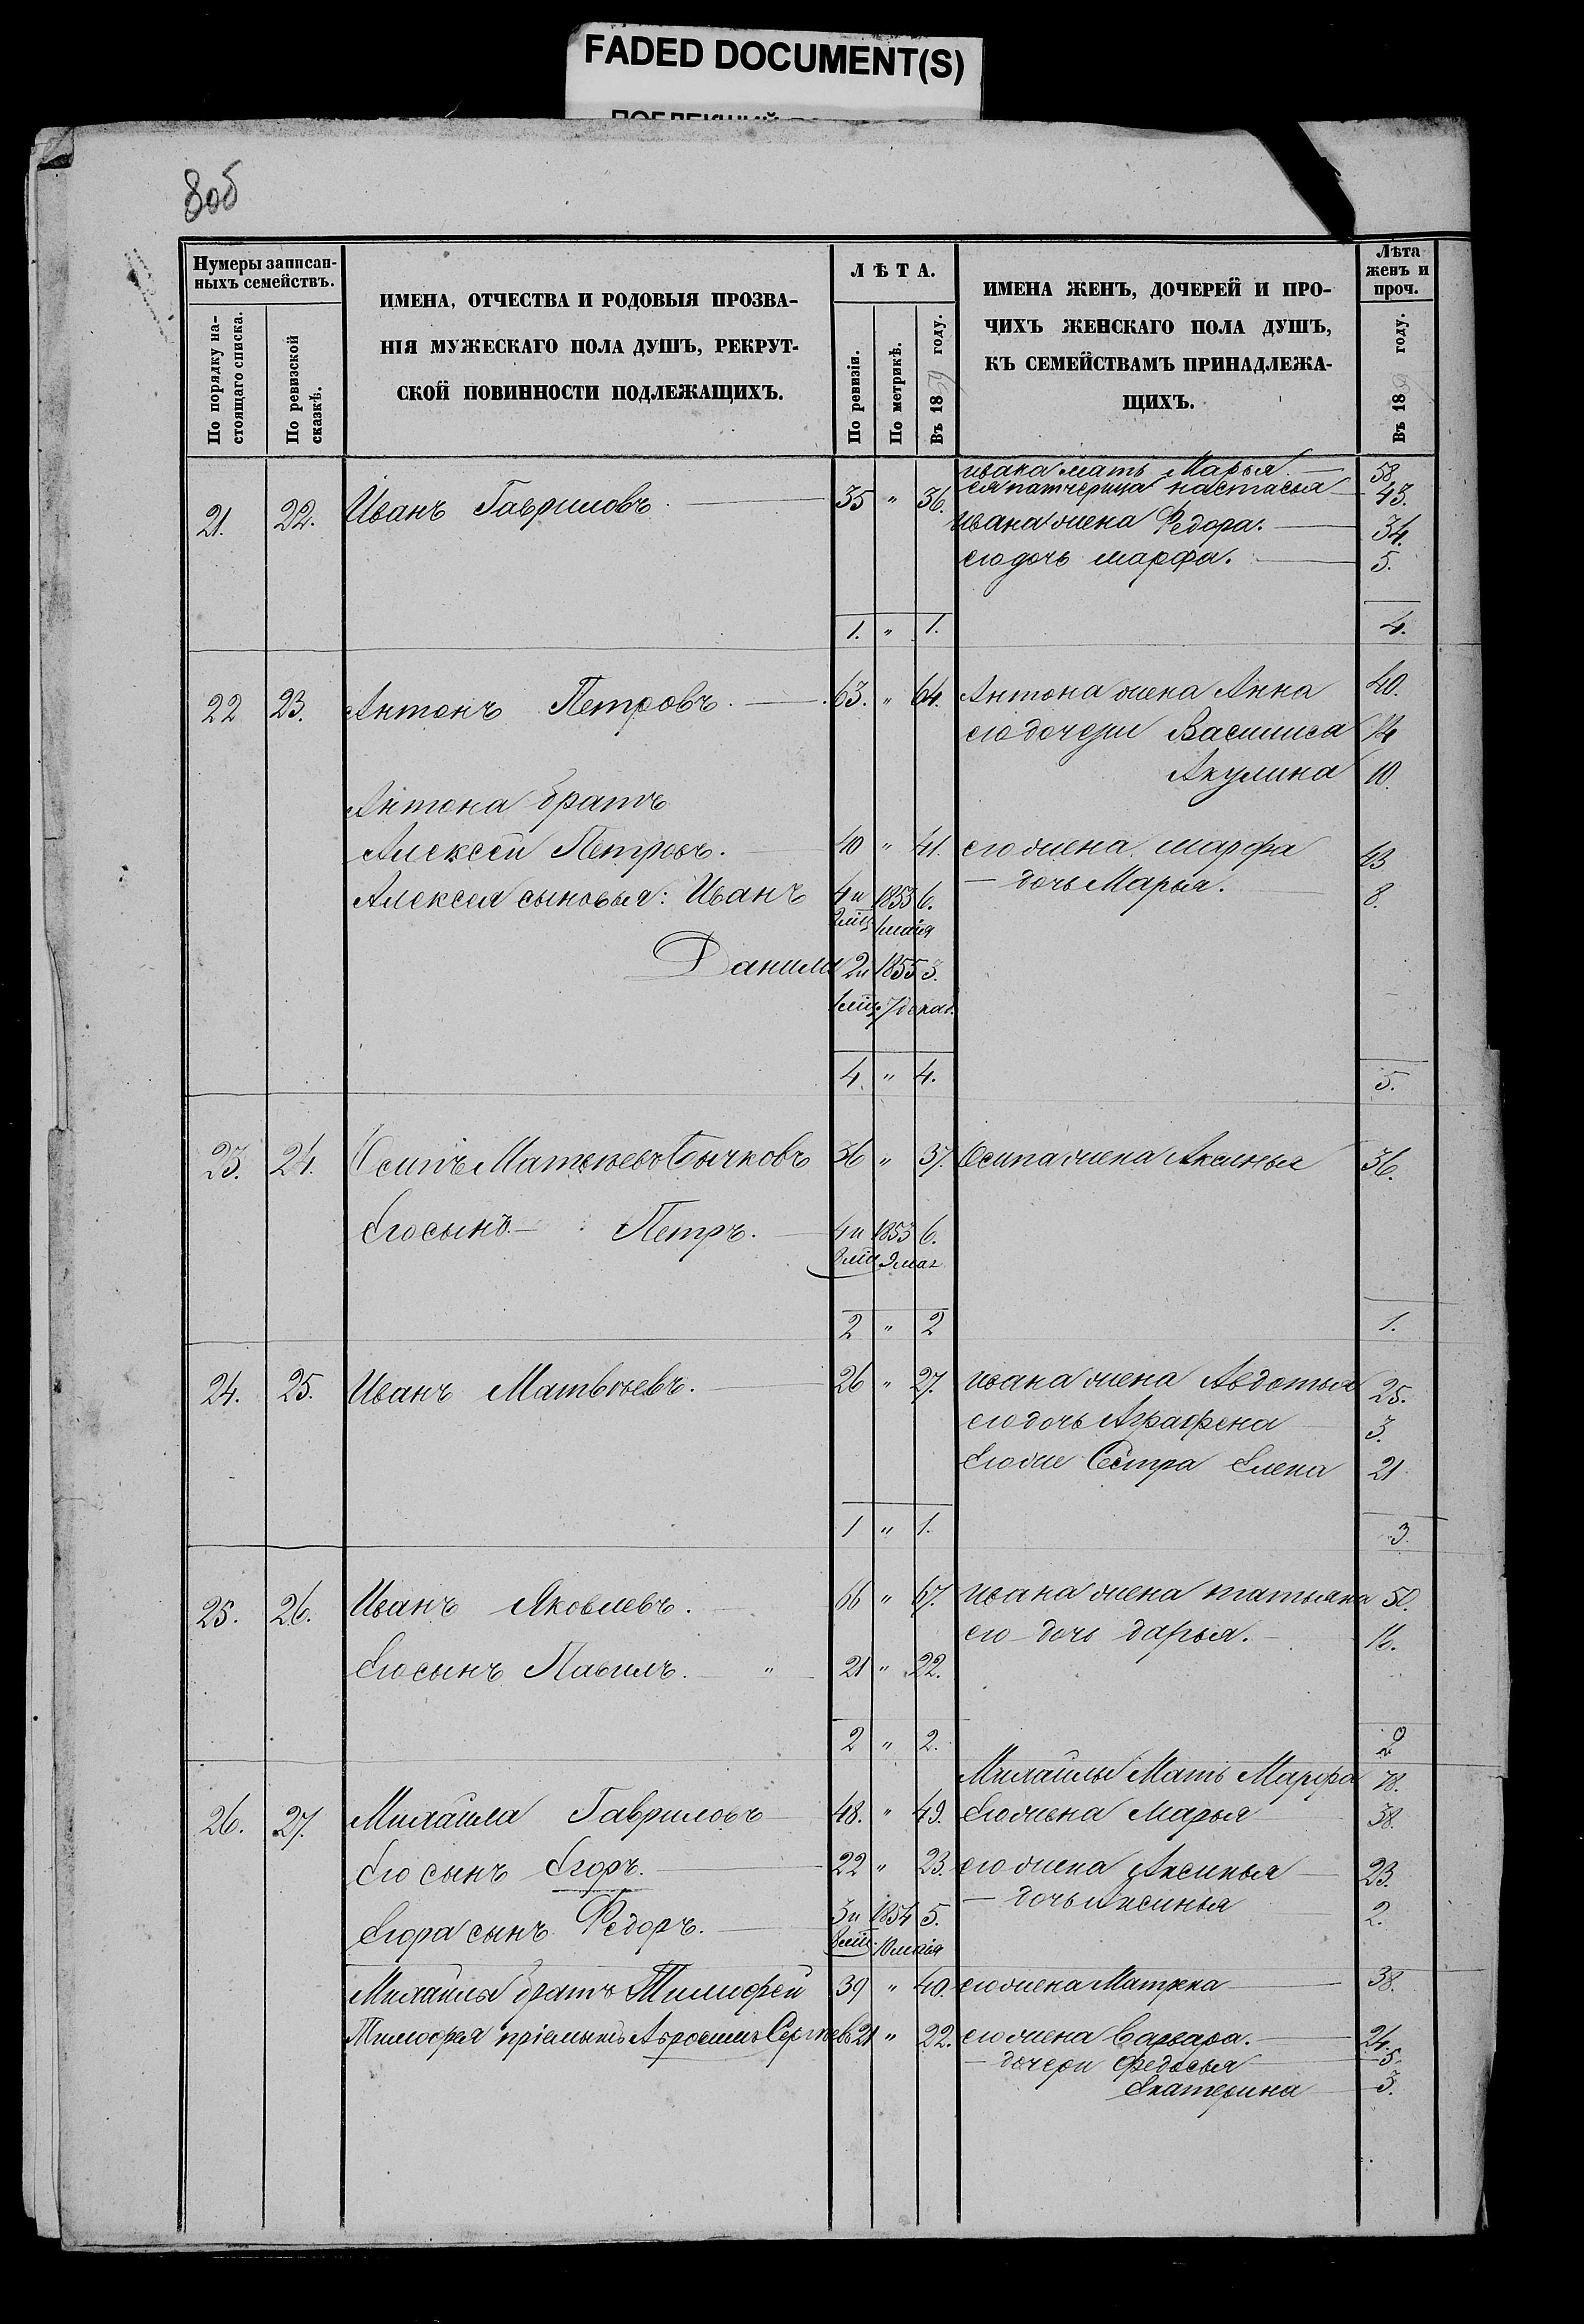 FADED DOCUMENT(S)
8об
Нумеры записан-
ныхъ семействъ.
По порядку на-
стоящаго списка.
По ревизской
сказкѣ.
ИМЕНА, ОТЧЕСТВА И РОДОВЫЯ ПРОЗВА-
НІЯ МУЖЕСКАГО ПОЛА ДУШЪ, РЕКРУТ-
СКОЙ ПОВИННОСТИ ПОДЛЕЖАЩИХЪ.
ЛѢТА.
По ревизіи.
По метрикѣ.
Въ 1859 году.
ИМЕНА ЖЕНЪ, ДОЧЕРЕЙ И ПРО-
ЧИХЪ ЖЕНСКАГО ПОЛА ДУШЪ,
КЪ СЕМЕЙСТВАМЪ ПРИНАДЛЕЖА-
ЩИХЪ.
Лѣта
женъ и
проч.
Въ 1859 году.
ивана мать Марья 58
ея патчерица настасья 43.
21. 22. Иванъ Гавриловъ. 35 " 36.
ивана жена Федора. 34.
его дочь марфа. 5.
1. " 1. 4.
22 23. Антонъ Петровъ. 63. " 64. Антона жена Анна 40.
его дочери Василиса 14
Акулина 10.
Антона братъ
Алексей Петровъ. 40 " 41. его жена марфа 43
Алексея сыновья: Иванъ 4 и 1853 6. — дочь Марья. 8.
мѣц 1 мая
Данила 2 и 1855 3.
мѣц 7 декаб.
4 " 4. 5.
23. 24. Осипъ Матвеевъ Бычковъ 36 " 37. Осипа жена Аксинья 36.
Его сынъ — Петръ. 4 и 1853 6.
мѣц маг
2 " 2 1.
24. 25. Иванъ Матвѣевъ. 26 " 27. ивана жена Авдотья 25.
его дочь Аграфена 3.
Его же Сестра Елена 21
1 " 1. 3.
25. 26. Иванъ Яковлевъ. 66 " 67. ивана жена татьяна 50.
его дочь дарья. 16.
Его сынъ Павилъ. 21 " 22.
2 " 2. 2
Михайлы Мать Марфа 78.
26. 27. Михайла Гавриловъ 48. " 49. Его жена Марья 38.
Его сынъ Егоръ. 22 " 23. его жена Аксинья 23.
— дочь Аксинья 2.
Егора сынъ Федоръ. 3 и 1854 5.
8 мѣц. 10 мая
Михайлы братъ Тимофей 39 " 40. его жена Матрена 38.
Тимофея пріемышъ Абросимъ Сергѣевъ 21 " 22. его жена Варвара. 24.
— дочери Федосья 5.
Екатерина 3.